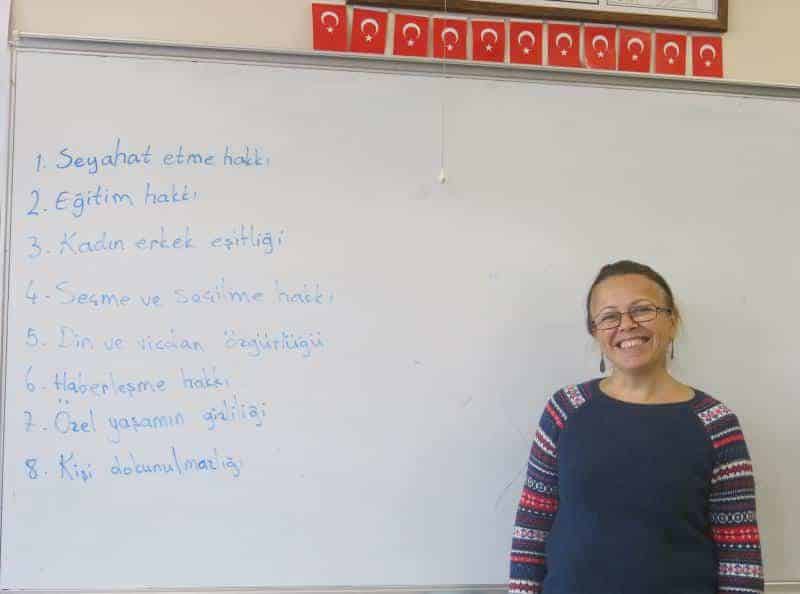 1. Seyahat etme hakkı
2. Eğitim hakkı
3. Kadın erkek eşitliği
4. Seçme ve seçilme hakkı
5. Din ve vicdan özgürlüğü
6. Haberleşme hakkı
7. Özel yaşamın gizliliği
8. Kişi dokunulmazlığı